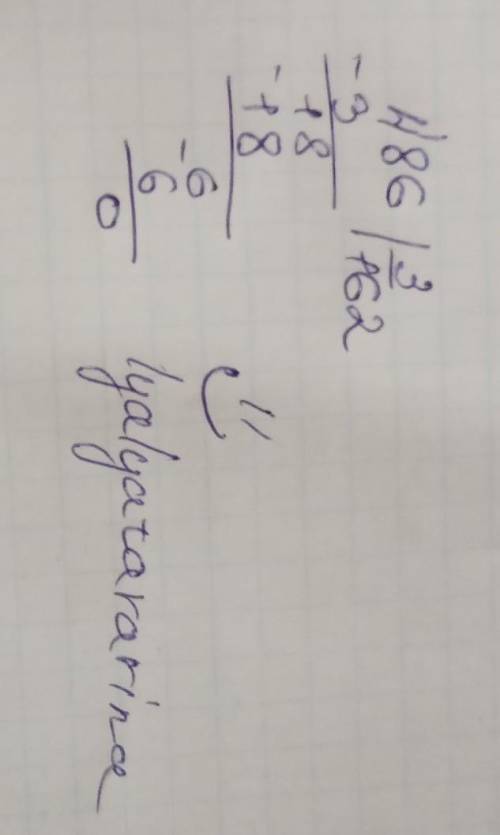 486 | 3
-3 162
18
-18
6
-6
0
lyalyatararina